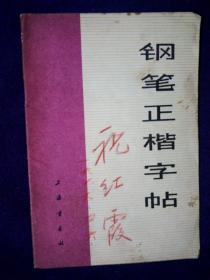 钢笔正楷字帖
祝红霞
上海书画社